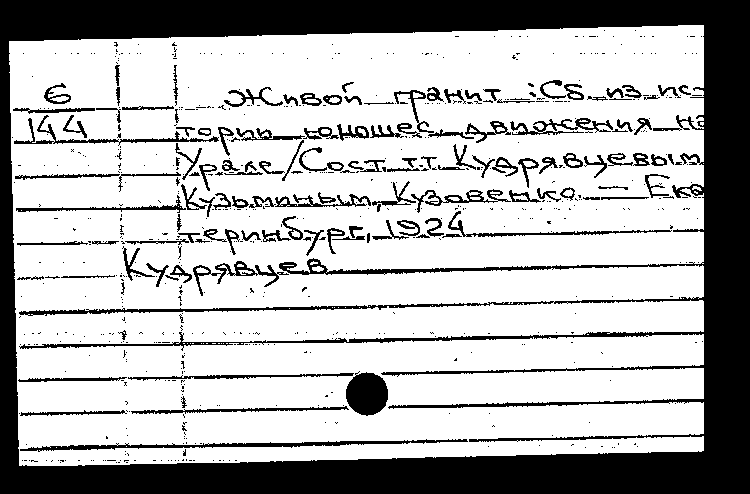 6
Живой гранит : Сб. из ис-
144
тории юношес. движения на
Урале / Сост. т.т. Кудрявцевым
Кузьминым, Кузовенко. — Ека
теринбург, 1924
Кудрявцев